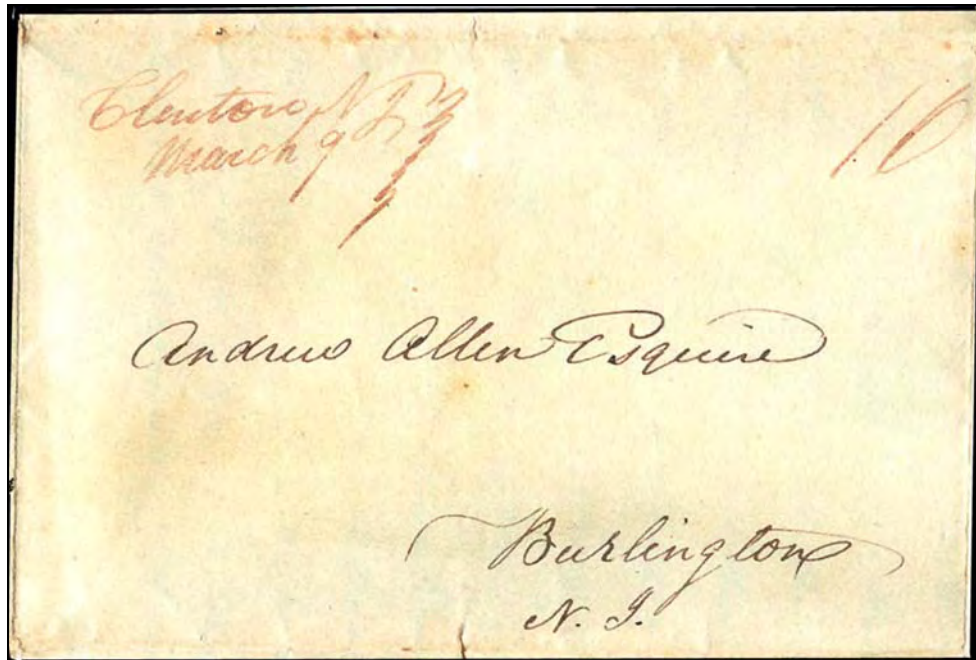 Clinton N J
March 9
10
Andrew Allen Esquire
Burlington
N. J.